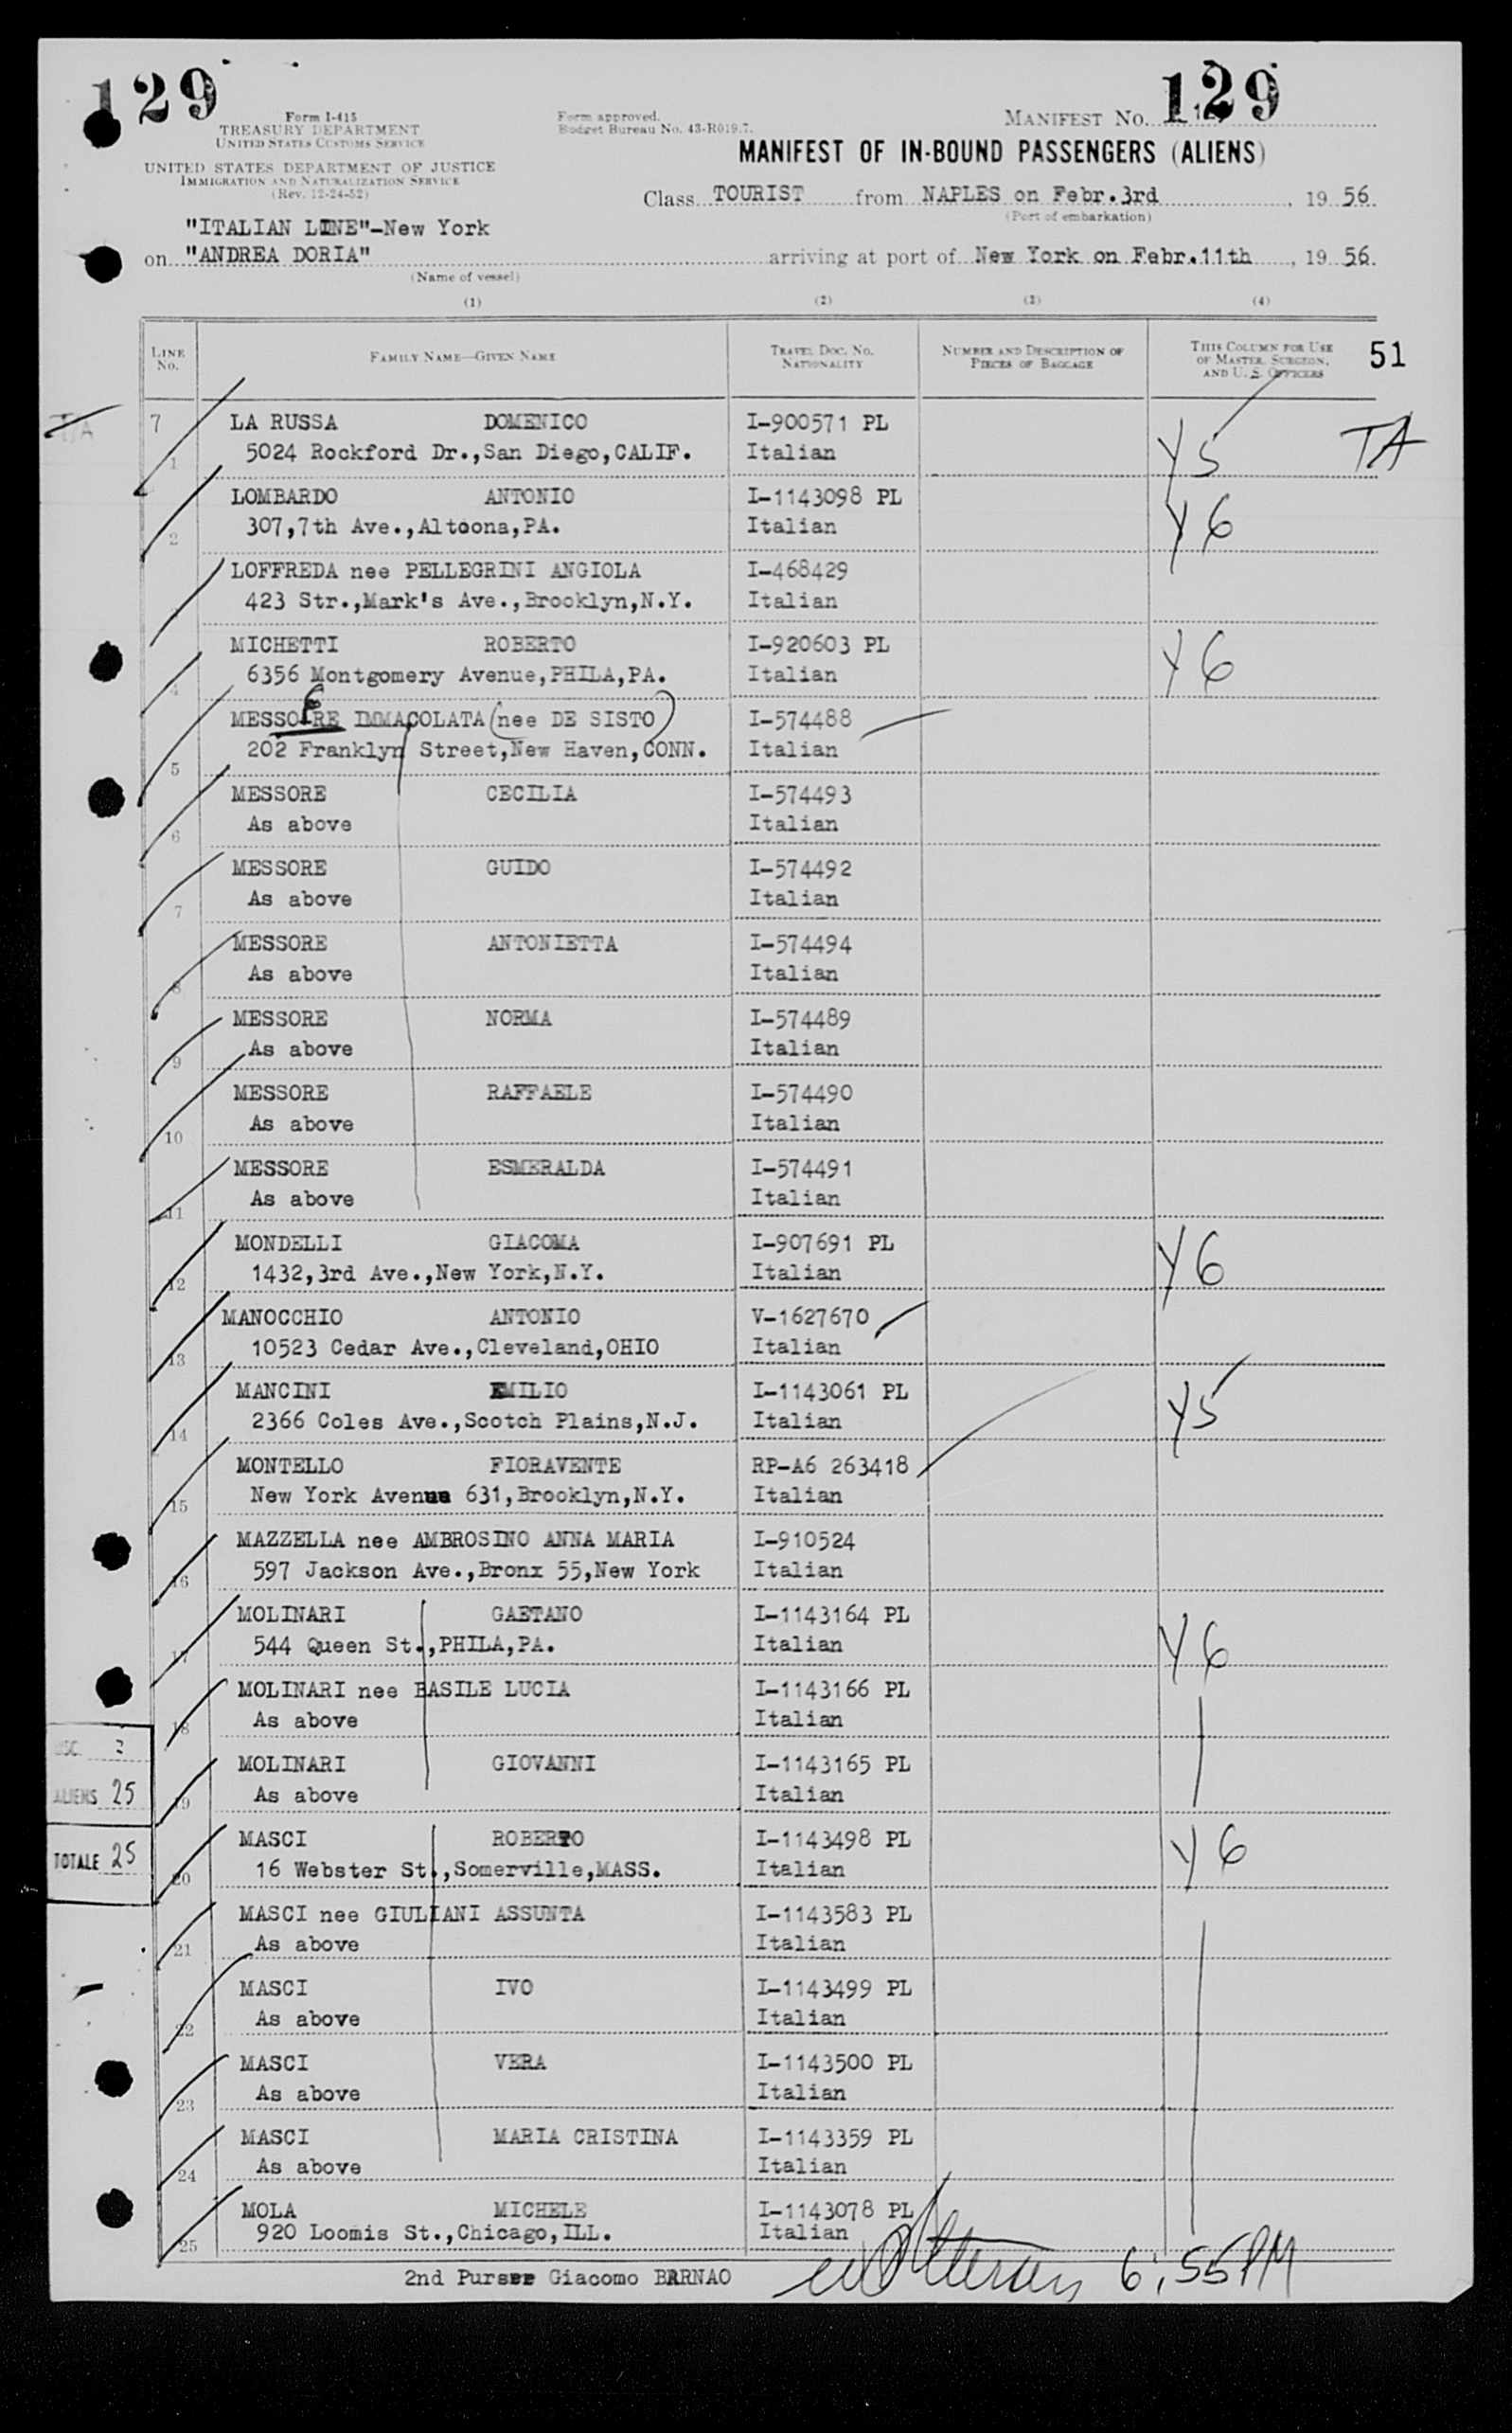 129
129
Form I-415
TREASURY DEPARTMENT
UNITED STATES CUSTOMS SERVICE
UNITED STATES DEPARTMENT OF JUSTICE
IMMIGRATION AND NATURALIZATION SERVICE
(Rev. 12-24-52)
Form approved.
Budget Bureau No. 43-R019.7.
MANIFEST NO.
MANIFEST OF IN-BOUND PASSENGERS (ALIENS)
Class TOURIST from NAPLES on Febr.3rd, 19 56.
(Port of embarkation)
"ITALIAN LINE"-New York
on "ANDREA DORIA" arriving at port of New York on Febr.11th, 19 56.
(Name of vessel)
(1) (2) (3) (4)
LINE No. FAMILY NAME—GIVEN NAME TRAVEL DOC. NO. NATIONALITY NUMBER AND DESCRIPTION OF PIECES OF BAGGAGE THIS COLUMN FOR USE OF MASTER, SURGEON, AND U. S. OFFICERS 51
7 LA RUSSA DOMENICO I-900571 PL
1 5024 Rockford Dr.,San Diego,CALIF. Italian Y5 TA
LOMBARDO ANTONIO I-1143098 PL
2 307,7th Ave.,Altoona,PA. Italian Y6
LOFFREDA nee PELLEGRINI ANGIOLA I-468429
423 Str.,Mark's Ave.,Brooklyn,N.Y. Italian
MICHETTI ROBERTO I-920603 PL
4 6356 Montgomery Avenue,PHILA,PA. Italian Y6
MESSORE IMMACOLATA (nee DE SISTO) I-574488
5 202 Franklyn Street,New Haven,CONN. Italian
MESSORE CECILIA I-574493
6 As above Italian
MESSORE GUIDO I-574492
7 As above Italian
MESSORE ANTONIETTA I-574494
8 As above Italian
MESSORE NORMA I-574489
9 As above Italian
MESSORE RAFFAELE I-574490
10 As above Italian
MESSORE ESMERALDA I-574491
11 As above Italian
MONDELLI GIACOMA I-907691 PL
12 1432,3rd Ave.,New York,N.Y. Italian Y6
MANOCCHIO ANTONIO V-1627670
13 10523 Cedar Ave.,Cleveland,OHIO Italian
MANCINI EMILIO I-1143061 PL
14 2366 Coles Ave.,Scotch Plains,N.J. Italian Y5
MONTELLO FIORAVENTE RP-A6 263418
15 New York Avenue 631,Brooklyn,N.Y. Italian
MAZZELLA nee AMBROSINO ANNA MARIA I-910524
16 597 Jackson Ave.,Bronx 55,New York Italian
MOLINARI GAETANO I-1143164 PL
17 544 Queen St.,PHILA,PA. Italian Y6
MOLINARI nee BASILE LUCIA I-1143166 PL
18 As above Italian
MOLINARI GIOVANNI I-1143165 PL
19 As above Italian
ALIENS 25
TOTALE 25
MASCI ROBERTO I-1143498 PL
20 16 Webster St.,Somerville,MASS. Italian Y6
MASCI nee GIULIANI ASSUNTA I-1143583 PL
21 As above Italian
MASCI IVO I-1143499 PL
22 As above Italian
MASCI VERA I-1143500 PL
23 As above Italian
MASCI MARIA CRISTINA I-1143359 PL
24 As above Italian
MOLA MICHELE I-1143078 PL
25 920 Loomis St.,Chicago,ILL. Italian
2nd Purser Giacomo BARNAO 6:55PM